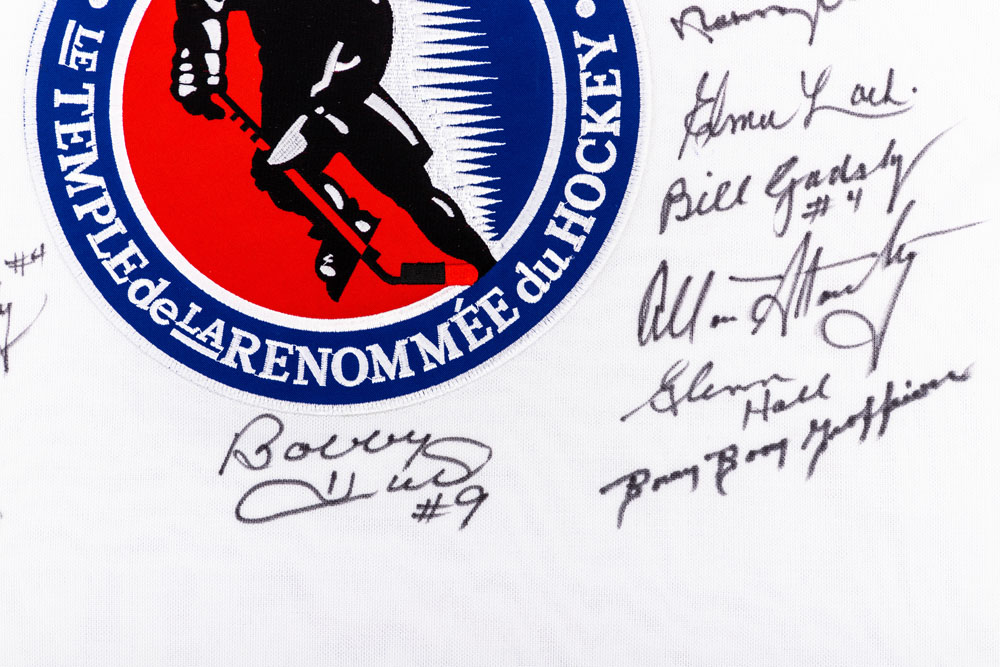 LE TEMPLE de LA RENOMMÉE du HOCKEY
Elmer Lach.
Bill Gadsby
#4
#4
Allan Stanley
Glenn
Hall
Boom Boom Geoffrion
Bobby
Hull
#9